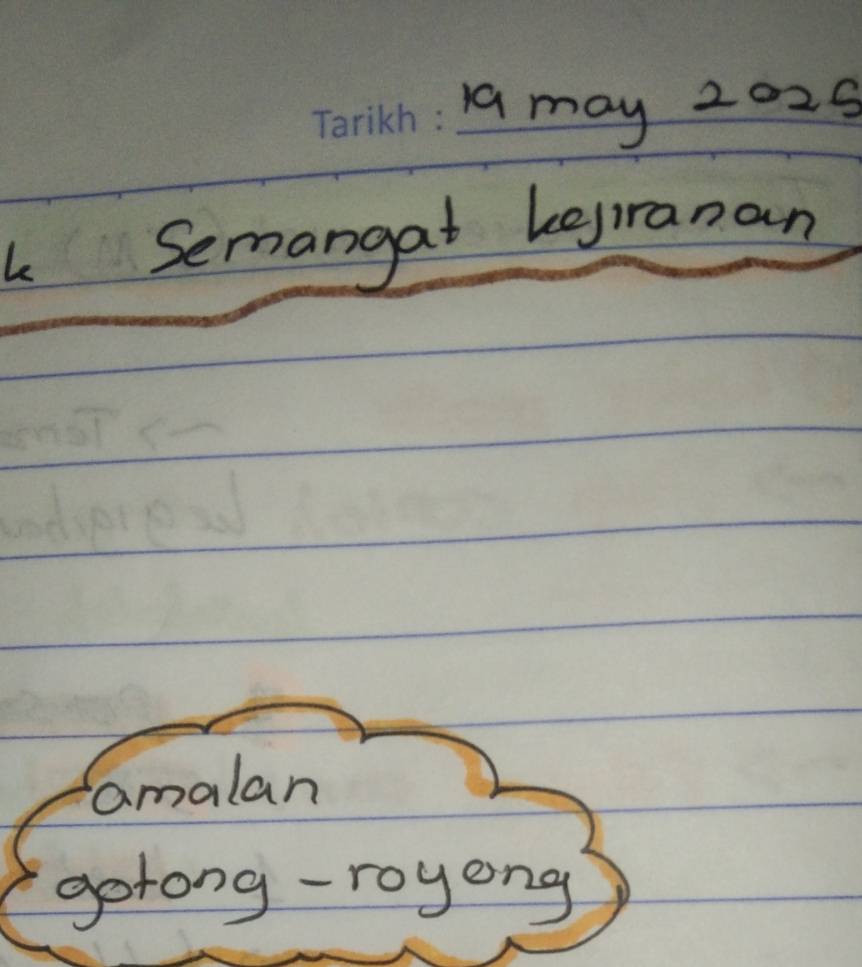 Tarikh : 19 may 2025
k Semangat kejiranan
amalan
gotong - royong